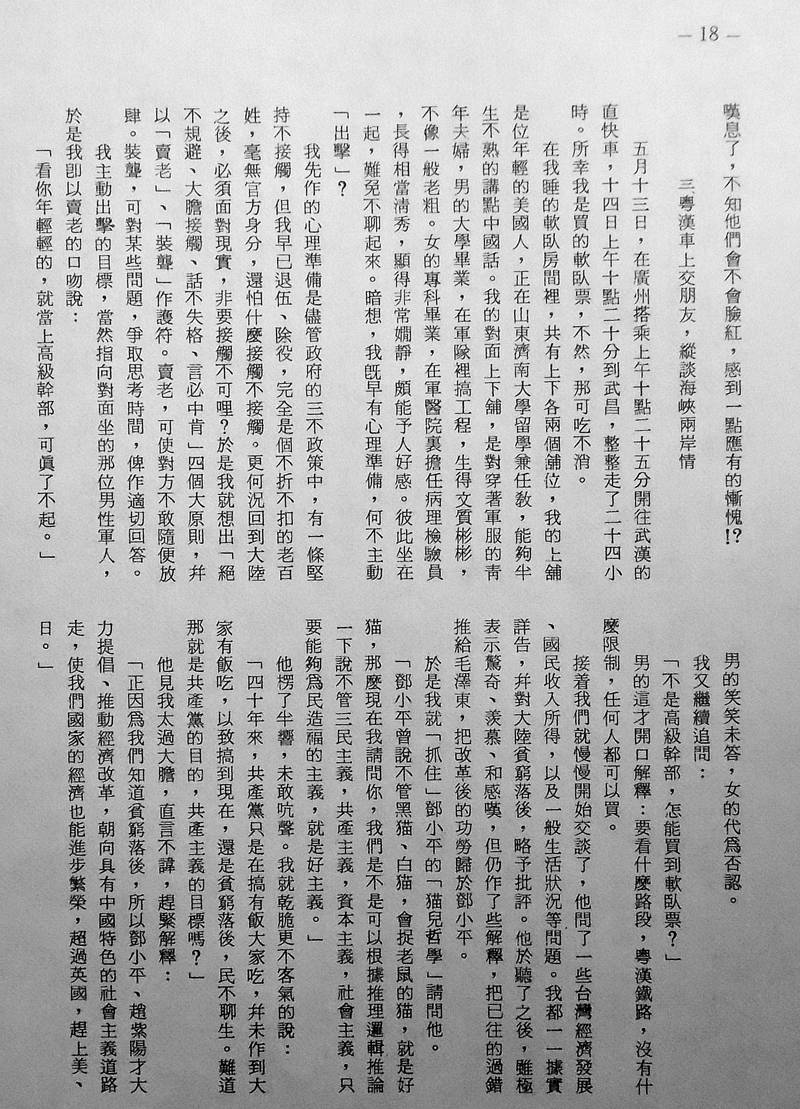 — 18 —
嘆息了，不知他們會不會臉紅，感到一點應有的慚愧!?
三、粵漢車上交朋友，縱談海峽兩岸情
五月十三日，在廣州搭乘上午十點二十五分開往武漢的
直快車，十四日上午十點二十分到武昌，整整走了二十四小
時。所幸我是買的軟臥票，不然，那可吃不消。
在我睡的軟臥房間裡，共有上下各兩個舖位，我的上舖
是位年輕的美國人，正在山東濟南大學留學兼任教，能夠半
生不熟的講點中國話。我的對面上下舖，是對穿著軍服的青
年夫婦，男的大學畢業，在軍隊裡搞工程，生得文質彬彬，
不像一般老粗。女的專科畢業，在軍醫院裏擔任病理檢驗員
，長得相當清秀，顯得非常嫺靜，頗能予人好感。彼此坐在
一起，難免不聊起來。暗想，我既早有心理準備，何不主動
「出擊」？
我先作的心理準備是儘管政府的三不政策中，有一條堅
持不接觸，但我早已退伍、除役，完全是個不折不扣的老百
姓，毫無官方身分，還怕什麼接觸不接觸。更何況回到大陸
之後，必須面對現實，非要接觸不可哩？於是我就想出「絕
不規避、大膽接觸、話不失格、言必中肯」四個大原則，幷
以「賣老」、「裝聾」作護符。賣老，可使對方不敢隨便放
肆。裝聾，可對某些問題，爭取思考時間，俾作適切回答。
我主動出擊的目標，當然指向對面坐的那位男性軍人，
於是我卽以賣老的口吻說：
「看你年輕輕的，就當上高級幹部，可眞了不起。」
男的笑笑未答，女的代爲否認。
我又繼續追問：
「不是高級幹部，怎能買到軟臥票？」
男的這才開口解釋：要看什麼路段，粵漢鐵路，沒有什
麼限制，任何人都可以買。
接着我們就慢慢開始交談了，他問了一些台灣經濟發展
、國民收入所得，以及一般生活狀況等問題。我都一一據實
詳告，幷對大陸貧窮落後，略予批評。他於聽了之後，雖極
表示驚奇、羨慕、和感嘆，但仍作了些解釋，把已往的過錯
推給毛澤東，把改革後的功勞歸於鄧小平。
於是我就「抓住」鄧小平的「猫兒哲學」請問他。
「鄧小平曾說不管黑猫、白猫，會捉老鼠的猫，就是好
猫，那麼現在我請問你，我們是不是可以根據推理邏輯推論
一下說不管三民主義，共產主義，資本主義，社會主義，只
要能夠爲民造福的主義，就是好主義。」
他楞了半響，未敢吭聲。我就乾脆更不客氣的說：
「四十年來，共產黨只是在搞有飯大家吃，幷未作到大
家有飯吃，以致搞到現在，還是貧窮落後，民不聊生。難道
那就是共產黨的目的，共產主義的目標嗎？」
他見我太過大膽，直言不諱，趕緊解釋：
「正因爲我們知道貧窮落後，所以鄧小平、趙紫陽才大
力提倡、推動經濟改革，朝向具有中國特色的社會主義道路
走，使我們國家的經濟也能進步繁榮，超過英國，趕上美、
日。」